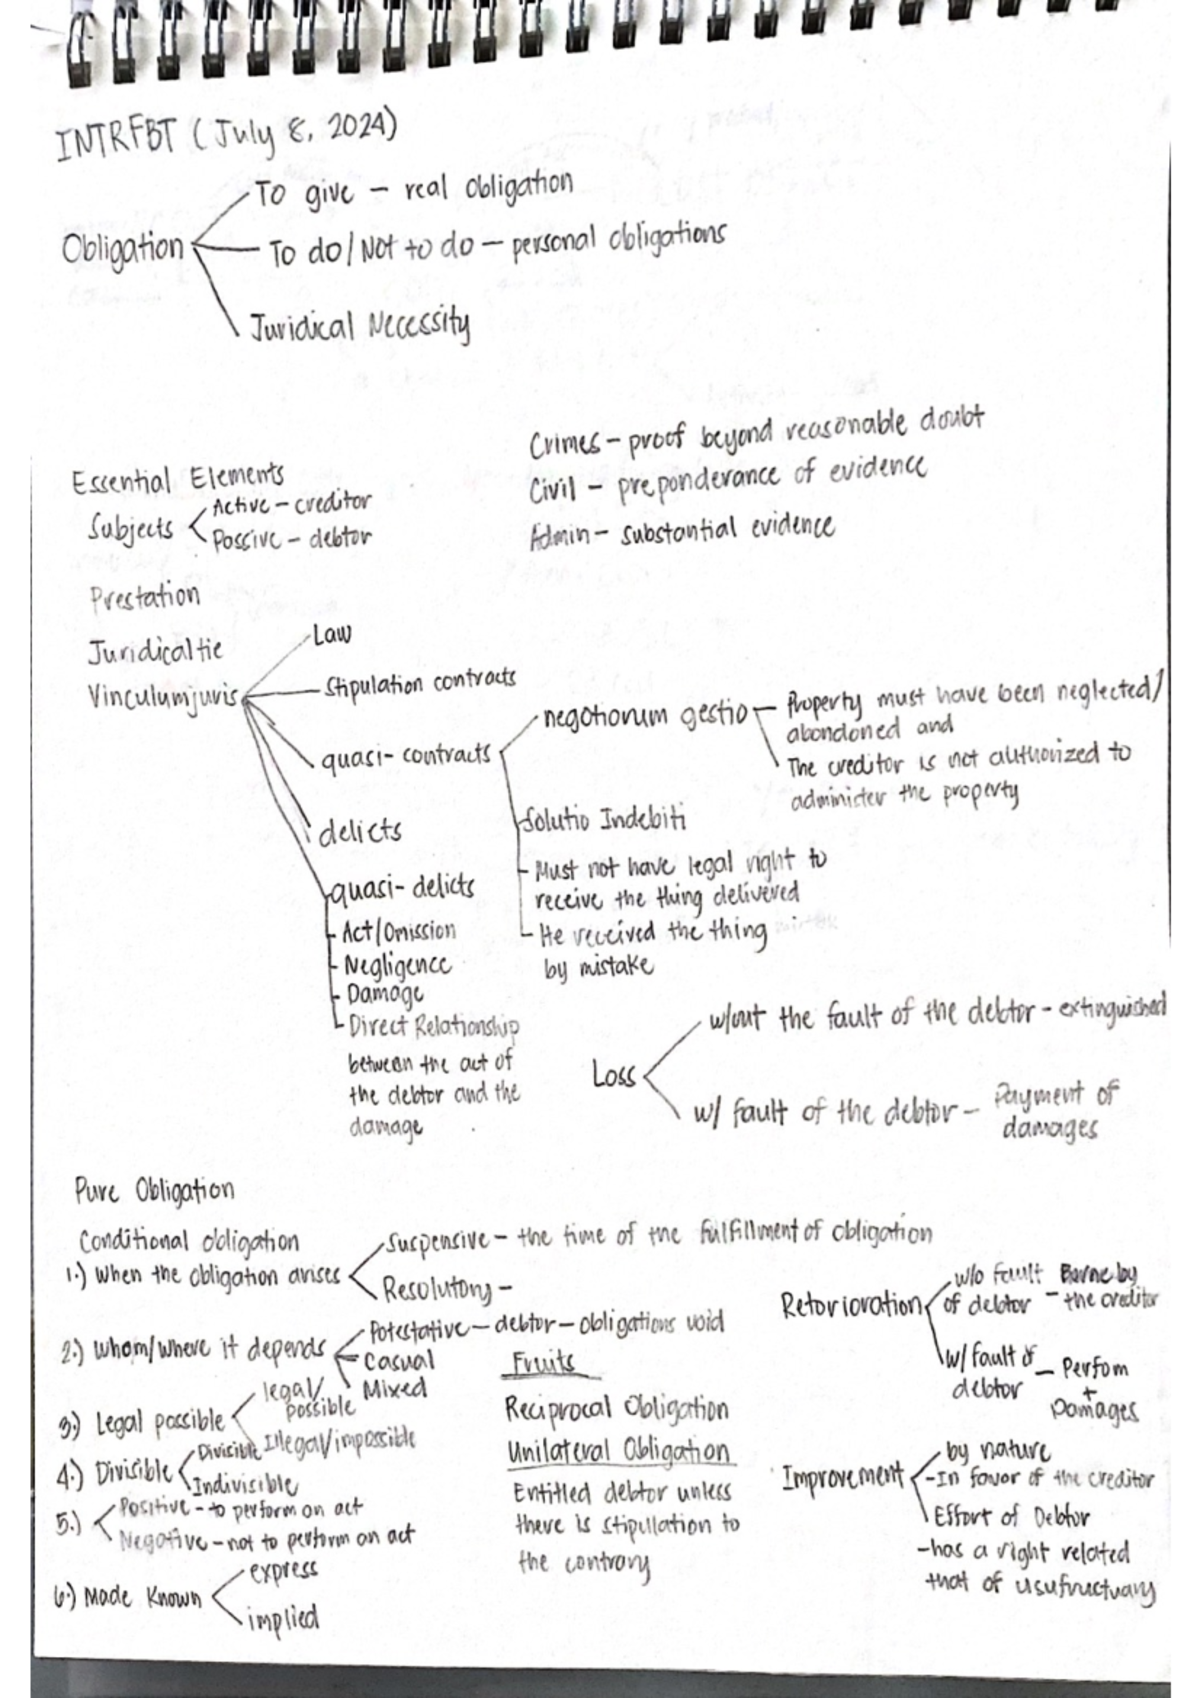 INTRFBT (July 8, 2024)
To give – real obligation
Obligation
To do/Not to do – personal obligations
Juridical Necessity
Crimes – proof beyond reasonable doubt
Civil – preponderance of evidence
Admin – substantial evidence
Essential Elements
Subjects
Active – creditor
Possive – debtor
Prestation
Juridical tie
Vinculum juris
Law
Stipulation contracts
quasi-contracts
negotiorum gestio
Property must have been neglected/
abandoned and
The creditor is not authorized to
administer the property
Solutio Indebiti
- Must not have legal right to
receive the thing delivered
- He received the thing
by mistake
delicts
quasi-delicts
- Act/Omission
- Negligence
- Damage
- Direct Relationship
between the act of
the debtor and the
damage
Loss
w/out the fault of the debtor – extinguished
w/ fault of the debtor – Payment of
damages
Pure Obligation
Conditional obligation
1.) When the obligation arises
Suspensive – the time of the fulfillment of obligation
Resolutory –
2.) Whom/Where it depends
Potestative – debtor – obligations void
Casual
Mixed
3.) Legal possible
legal/
possible
Illegal/impossible
4.) Divisible
Divisible
Indivisible
5.)
Positive – to perform an act
Negative – not to perform an act
6.) Made Known
express
implied
Fruits
Reciprocal Obligation
Unilateral Obligation
Entitled debtor unless
there is stipullation to
the contrary
Retorioration
w/o fault
of debtor – Borne by
the creditor
w/ fault of
debtor – Perfom
+
Damages
Improvement
by nature
- In favor of the creditor
Effort of Debtor
- has a right related
that of usufructuary